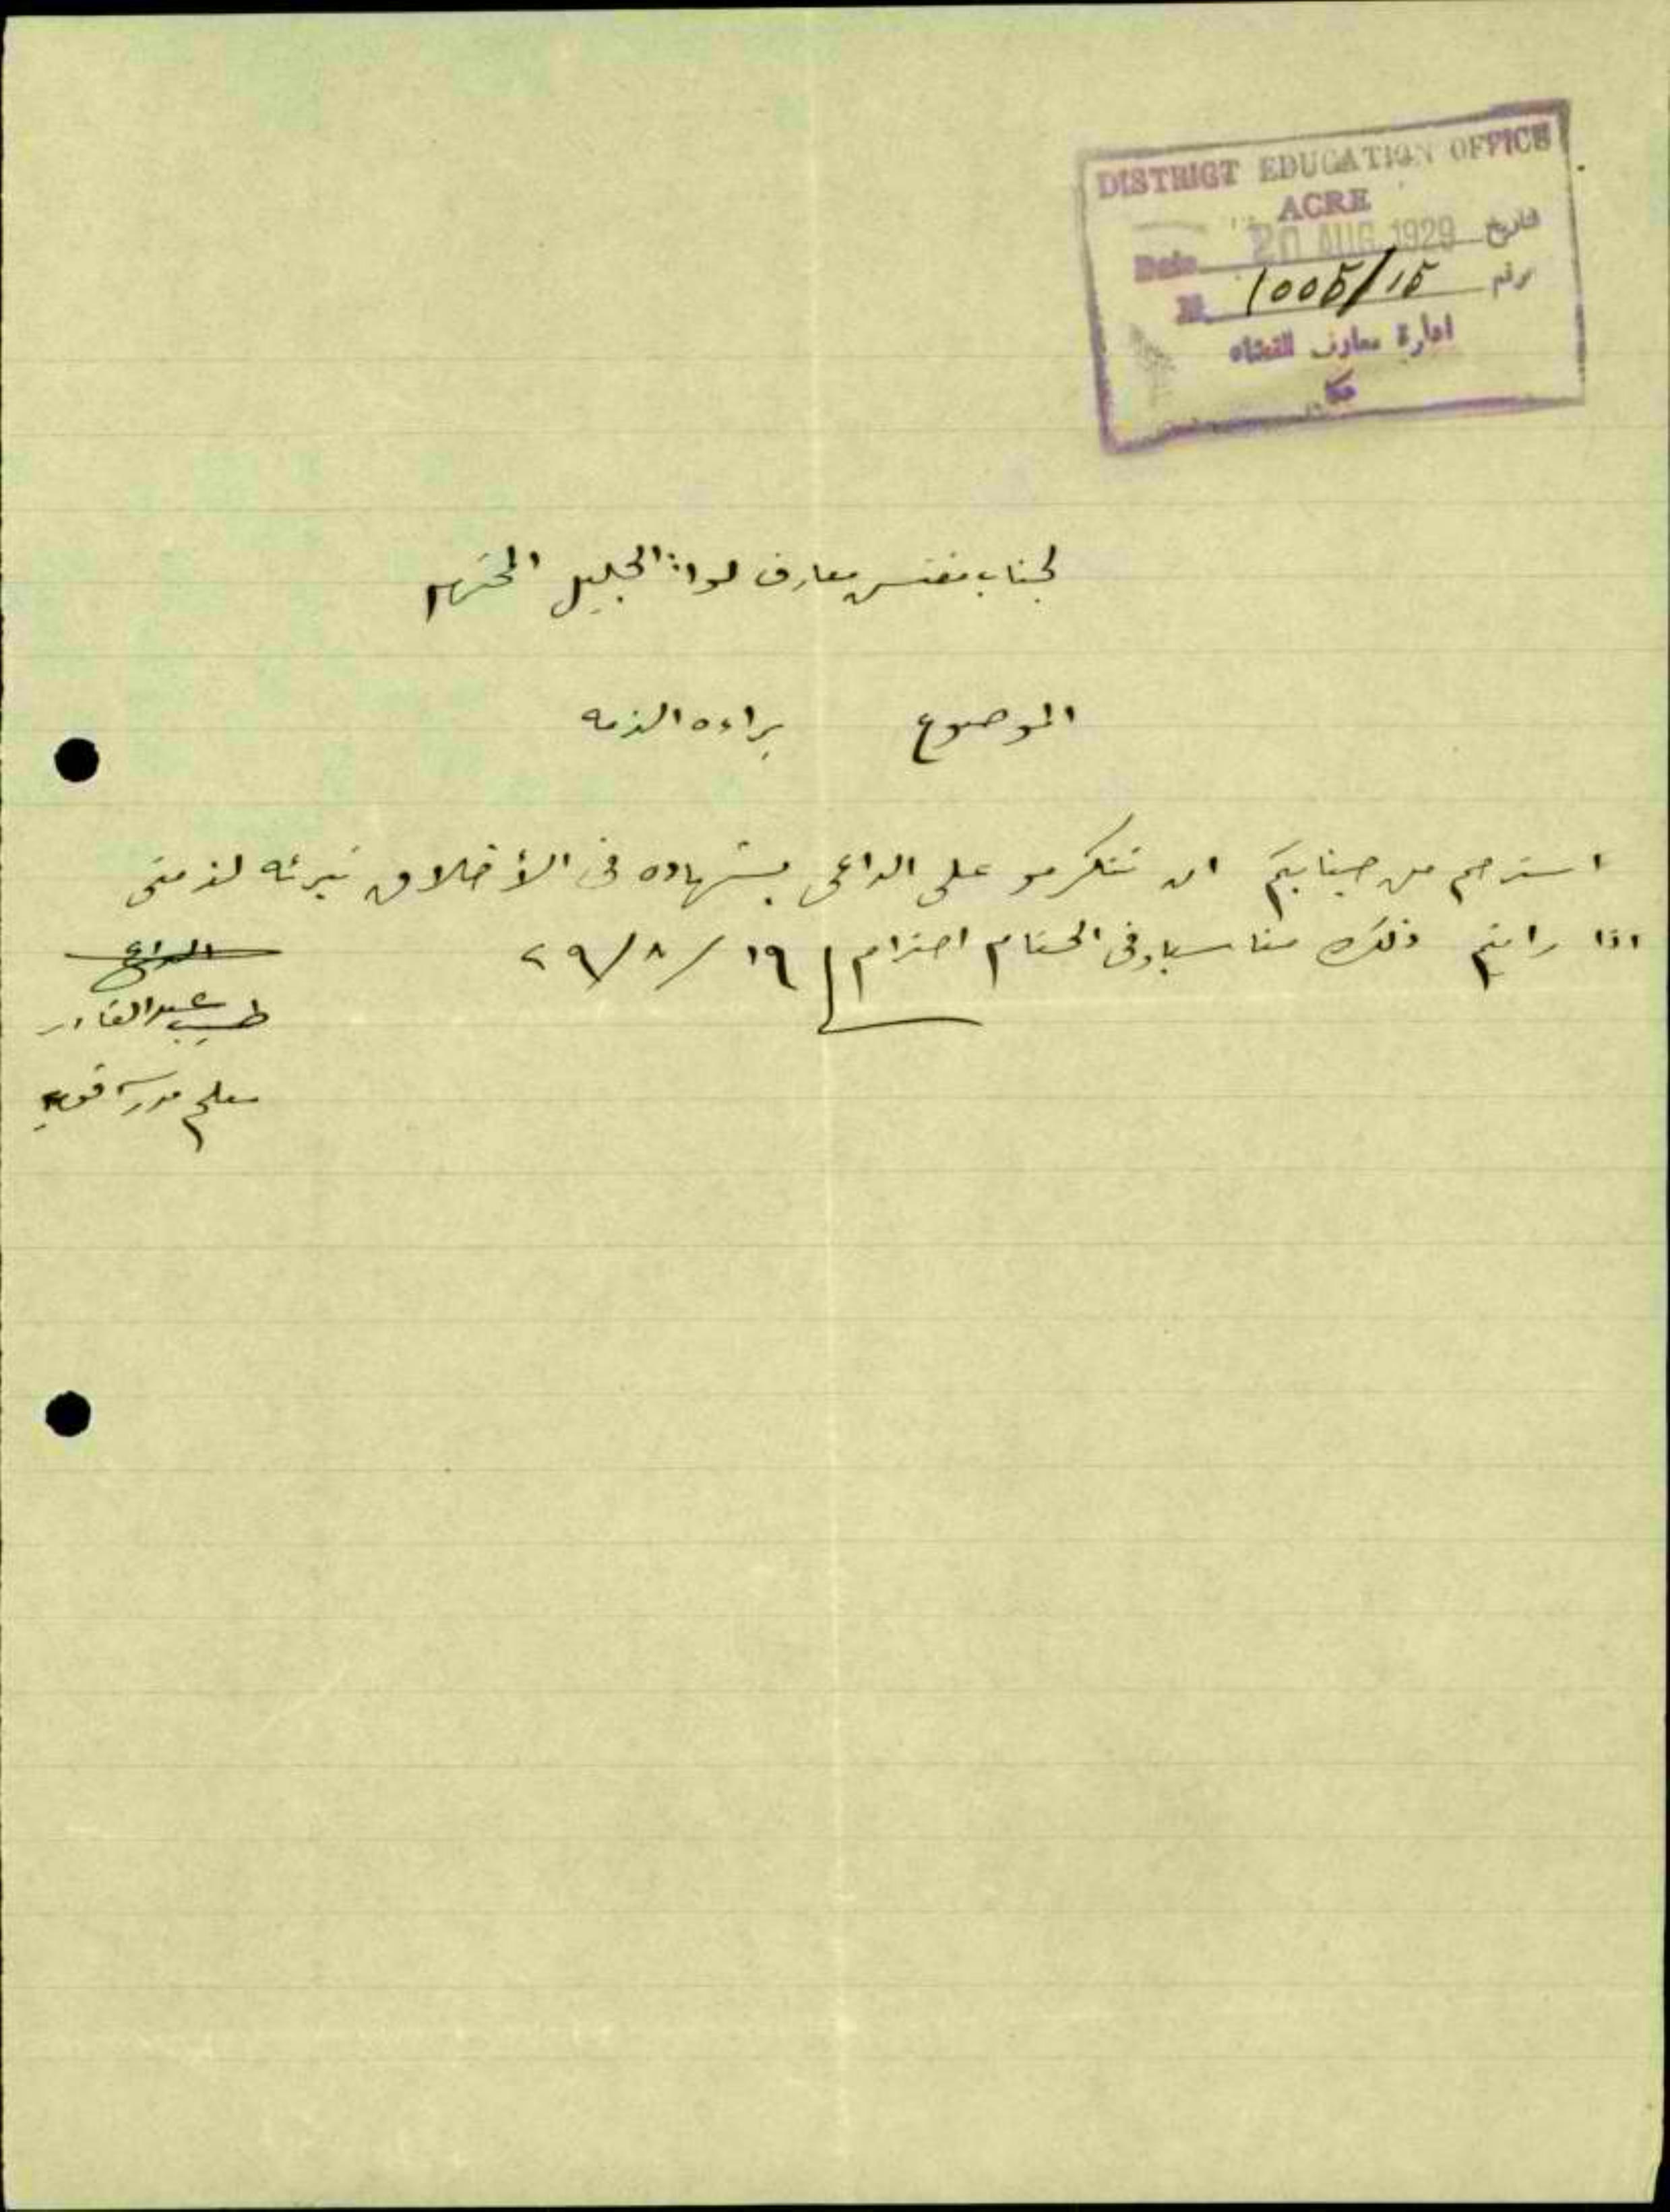 DISTRICT EDUCATION OFFICE
ACRE
Date 20 AUG 1929 تاريخ
N. 1005/15 رقم
ادارة معارف القضاء
عكا
لجناب مفتش معارف لواء الجليل المحترم
الموضوع براءه الذمه
استرحم من جنابكم ان تتكرمو على الداعى بشهاده فى الأخلاق تبرئه لذمتى
اذا رايتم ذلك مناسبا وفى الختام احترام ١٩/٨/٢٩
الداعي
طبيب عبد القادر
معلم مدرسة